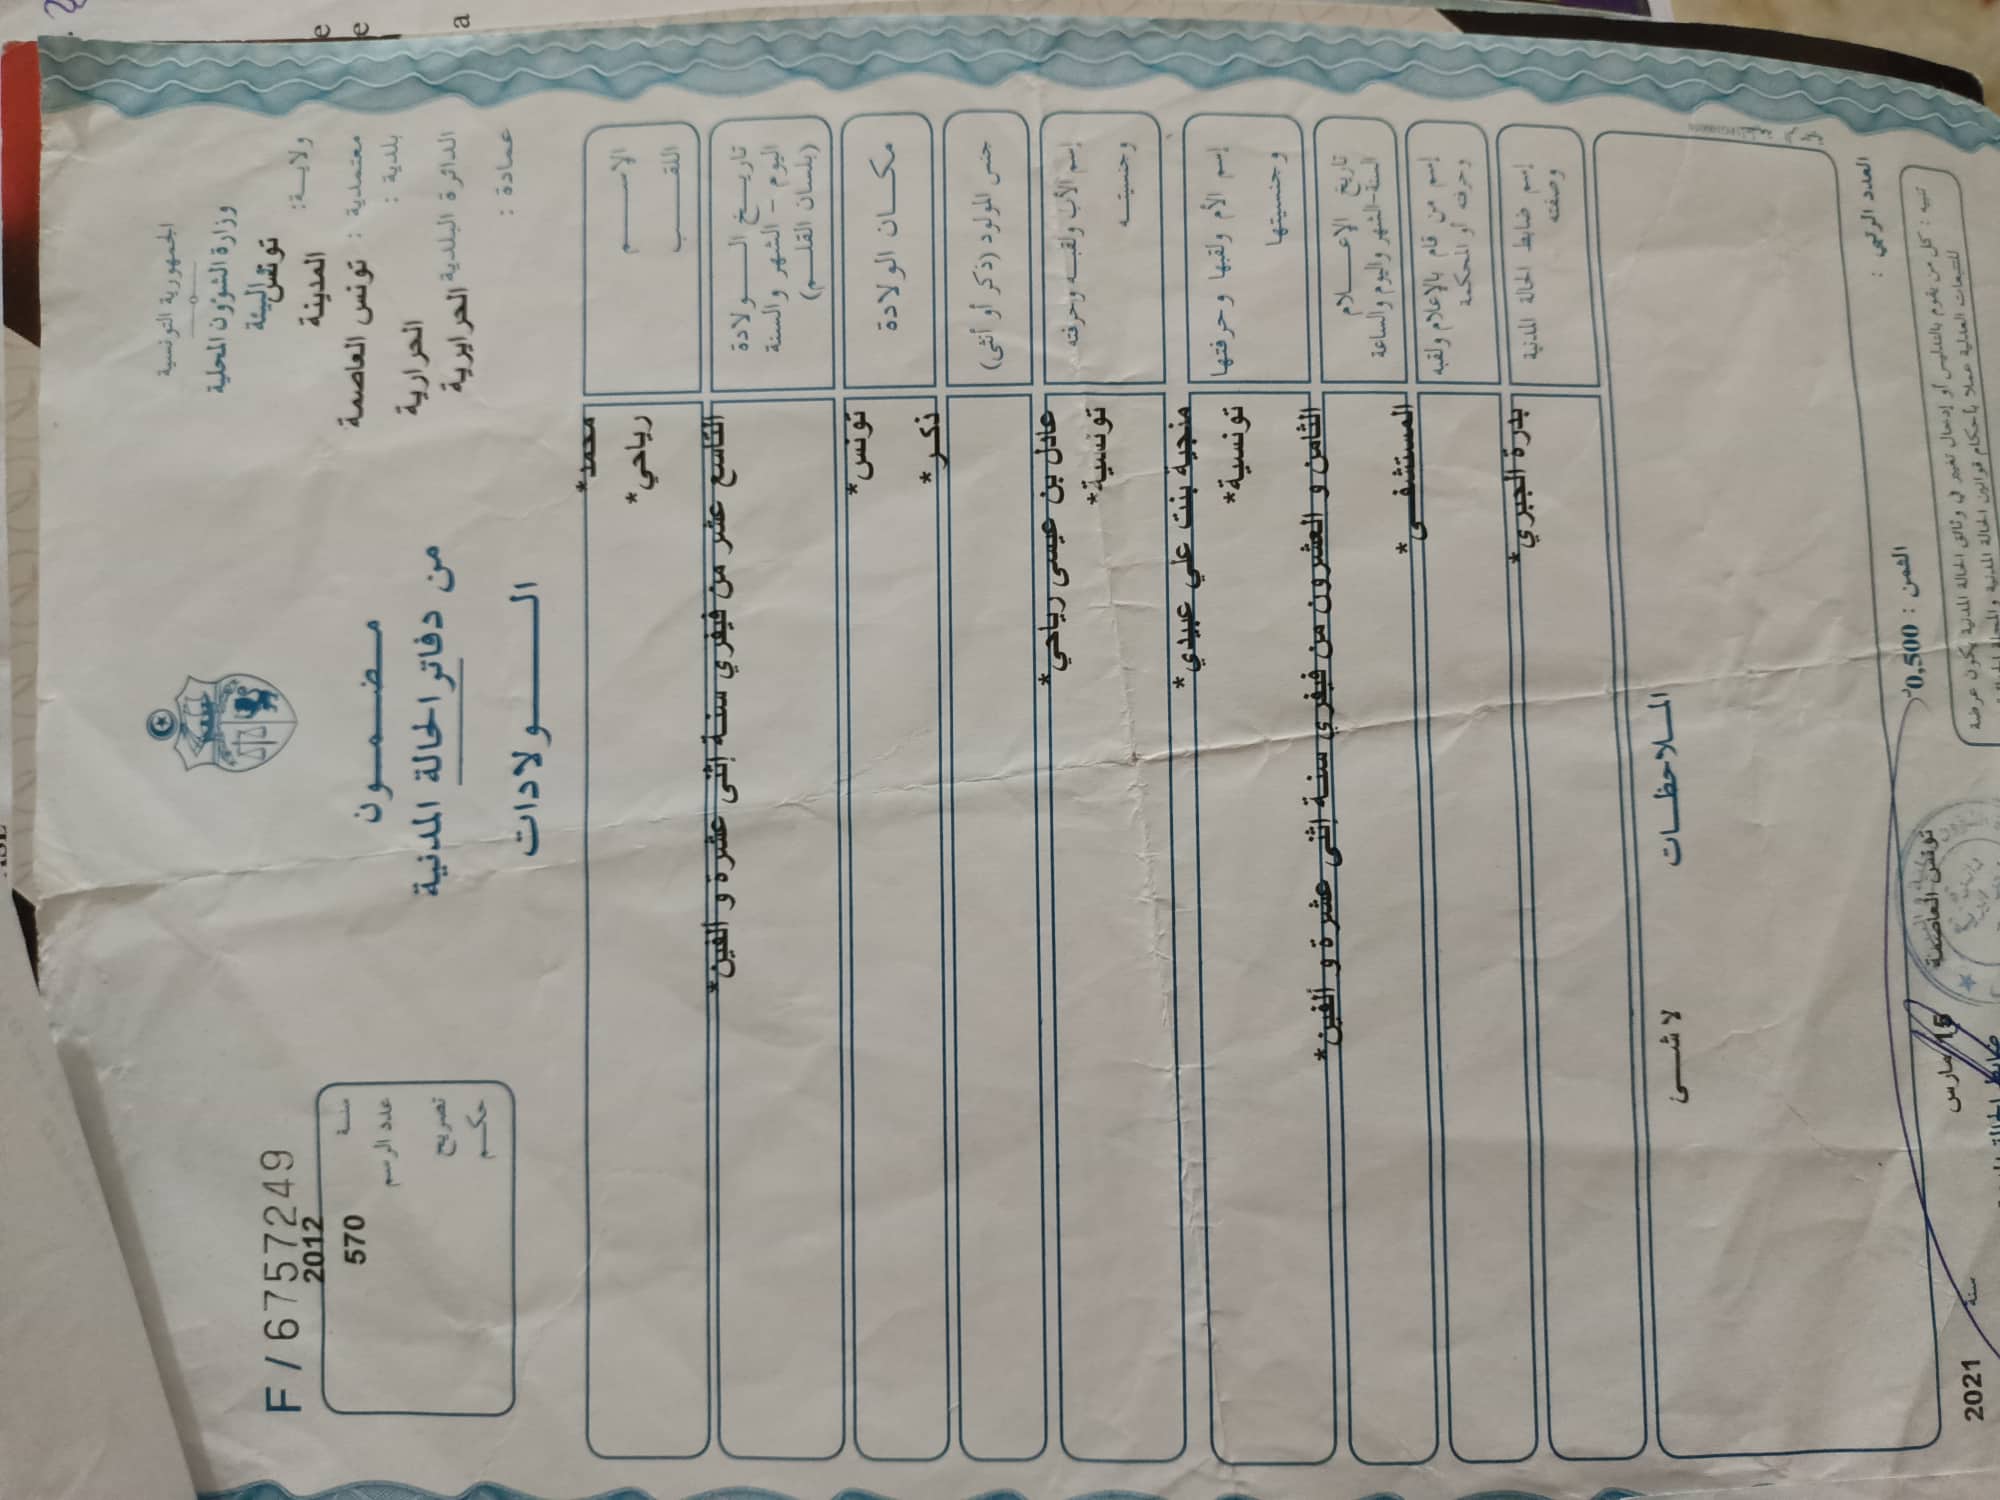 الجمهورية التونسية
وزارة الشؤون المحلية
والبيئة
ولاية: تونس
المدينة
معتمدية : تونس العاصمة
بلدية :
الحرارية
الدائرة البلدية الحرايرية
عمادة :
مضمون
من دفاتر الحالة المدنية
الولادات
F / 67572249
سنة 2012
عدد الرسم 570
تصريح
حكم
الإسم محمد*
اللقب رياحي*
تاريخ الولادة التاسع عشر من فيفري سنة إثنى عشرة و الفين*
اليوم - الشهر والسنة
(بلسان القلم)
مكان الولادة تونس*
جنس المولود (ذكر أو أنثى) ذكر*
إسم الأب ولقبه وحرفته عادل بن عيسى رياحي*
وجنسيته تونسية*
إسم الأم ولقبها وحرفتها منجية بنت علي عبيدي*
وجنسيتها تونسية*
تاريخ الإعلام الثامن و العشرون من فيفري سنة إثنى عشرة و ألفين*
السنة-الشهر واليوم والساعة
إسم من قام بالإعلام ولقبه المستشفى*
وحرفته أو المحكمة
إسم ضابط الحالة المدنية بدرة الجبري*
وصفته
الملاحظات
لا شىء
العدد الرتبي :
الثمن : 0,500د
تنبيه : كل من يقوم بالتدليس أو إدخال تغيير في وثائق الحالة المدنية يكون عرضة
للتتبعات العدلية عملا بأحكام قوانين الحالة المدنية
تونس العاصمة
15 مارس
سنة 2021